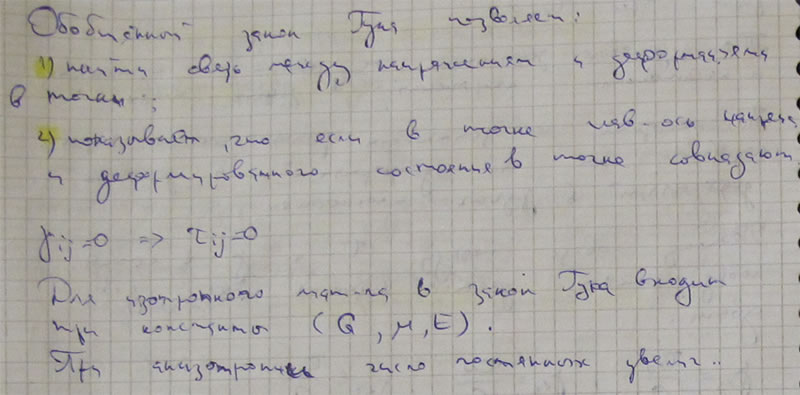 Обобщённый закон Гука позволяет:
1) найти связь между напряжениями и деформациями
в точках;
2) показывает, что если в точке глав. ось
и деформированного состояния в точке совпадают
γij=0 => τij=0
Для изотропного мат-ла в закон Гука входит
три константы (G, μ, E).
При число постоянных увелич..